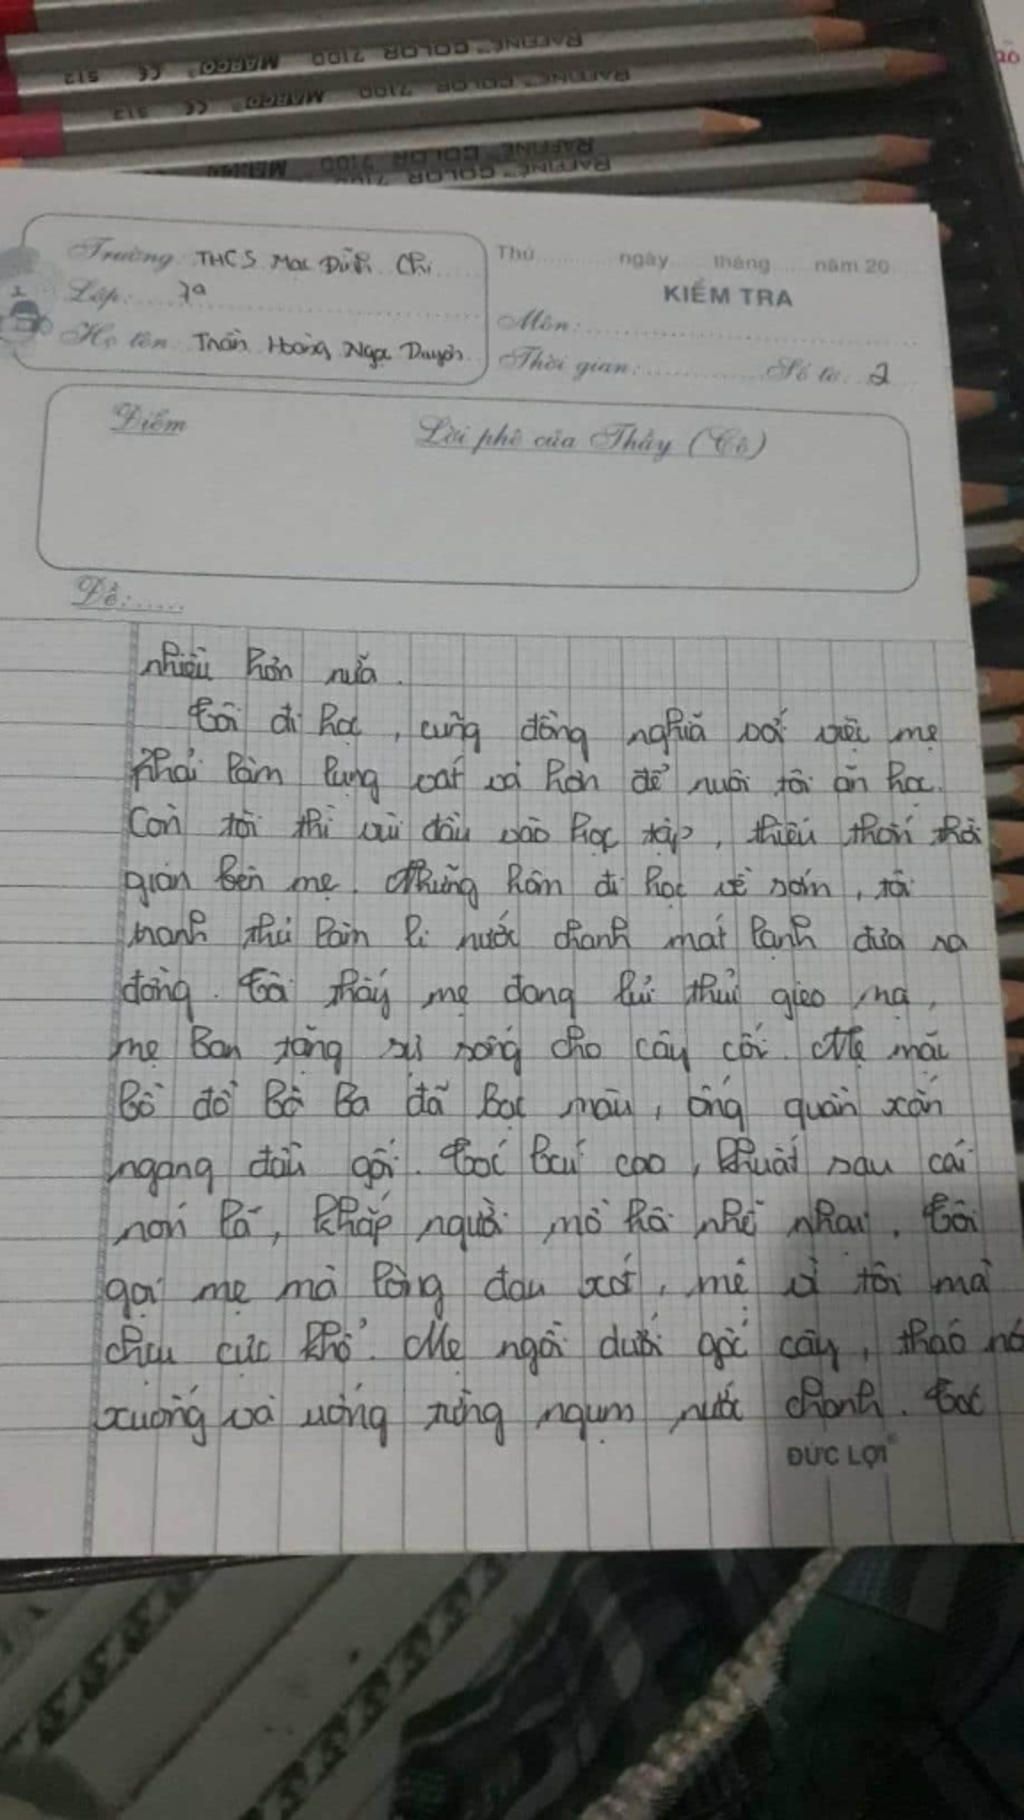 RAFFINÉ COLOR™ 7100 MARCO® CE 512
RAFFINÉ COLOR™ 7100 MARCO® CE 512
RAFFINÉ COLOR™ 7100
RAFFINÉ COLOR™ 7100
Trường: THCS Mạc Đĩnh Chi
Lớp: 7a
Họ tên: Trần Hoàng Ngọc Duyên
Thứ ngày tháng năm 20
KIỂM TRA
Môn:
Thời gian: Số tờ: 2
Điểm
Lời phê của Thầy (Cô)
Đề:
nhiều hơn nữa.
Tôi đi học, cũng đồng nghĩa với việc mẹ
phải làm lụng vất vả hơn để nuôi tôi ăn học.
Còn tôi thì vùi đầu vào học tập, thiếu thốn thời
gian bên mẹ. Những hôm đi học về sớm, tôi
tranh thủ làm li nước chanh mát lạnh đưa ra
đồng. Tôi thấy mẹ đang lúi thủi gieo mạ,
mẹ ban tặng sự sống cho cây cối. Mẹ mặc
bộ đồ bà ba đã bạc màu, ống quần xắn
ngang đầu gối. Tóc búi cao, khuất sau cái
nón lá, khắp người mồ hôi nhễ nhại. Tôi
gọi mẹ mà lòng đau xót, mẹ vì tôi mà
chịu cực khổ. Mẹ ngồi dưới gốc cây, tháo nó
xuống và uống từng ngụm nước chanh. Tóc
ĐỨC LỢI®